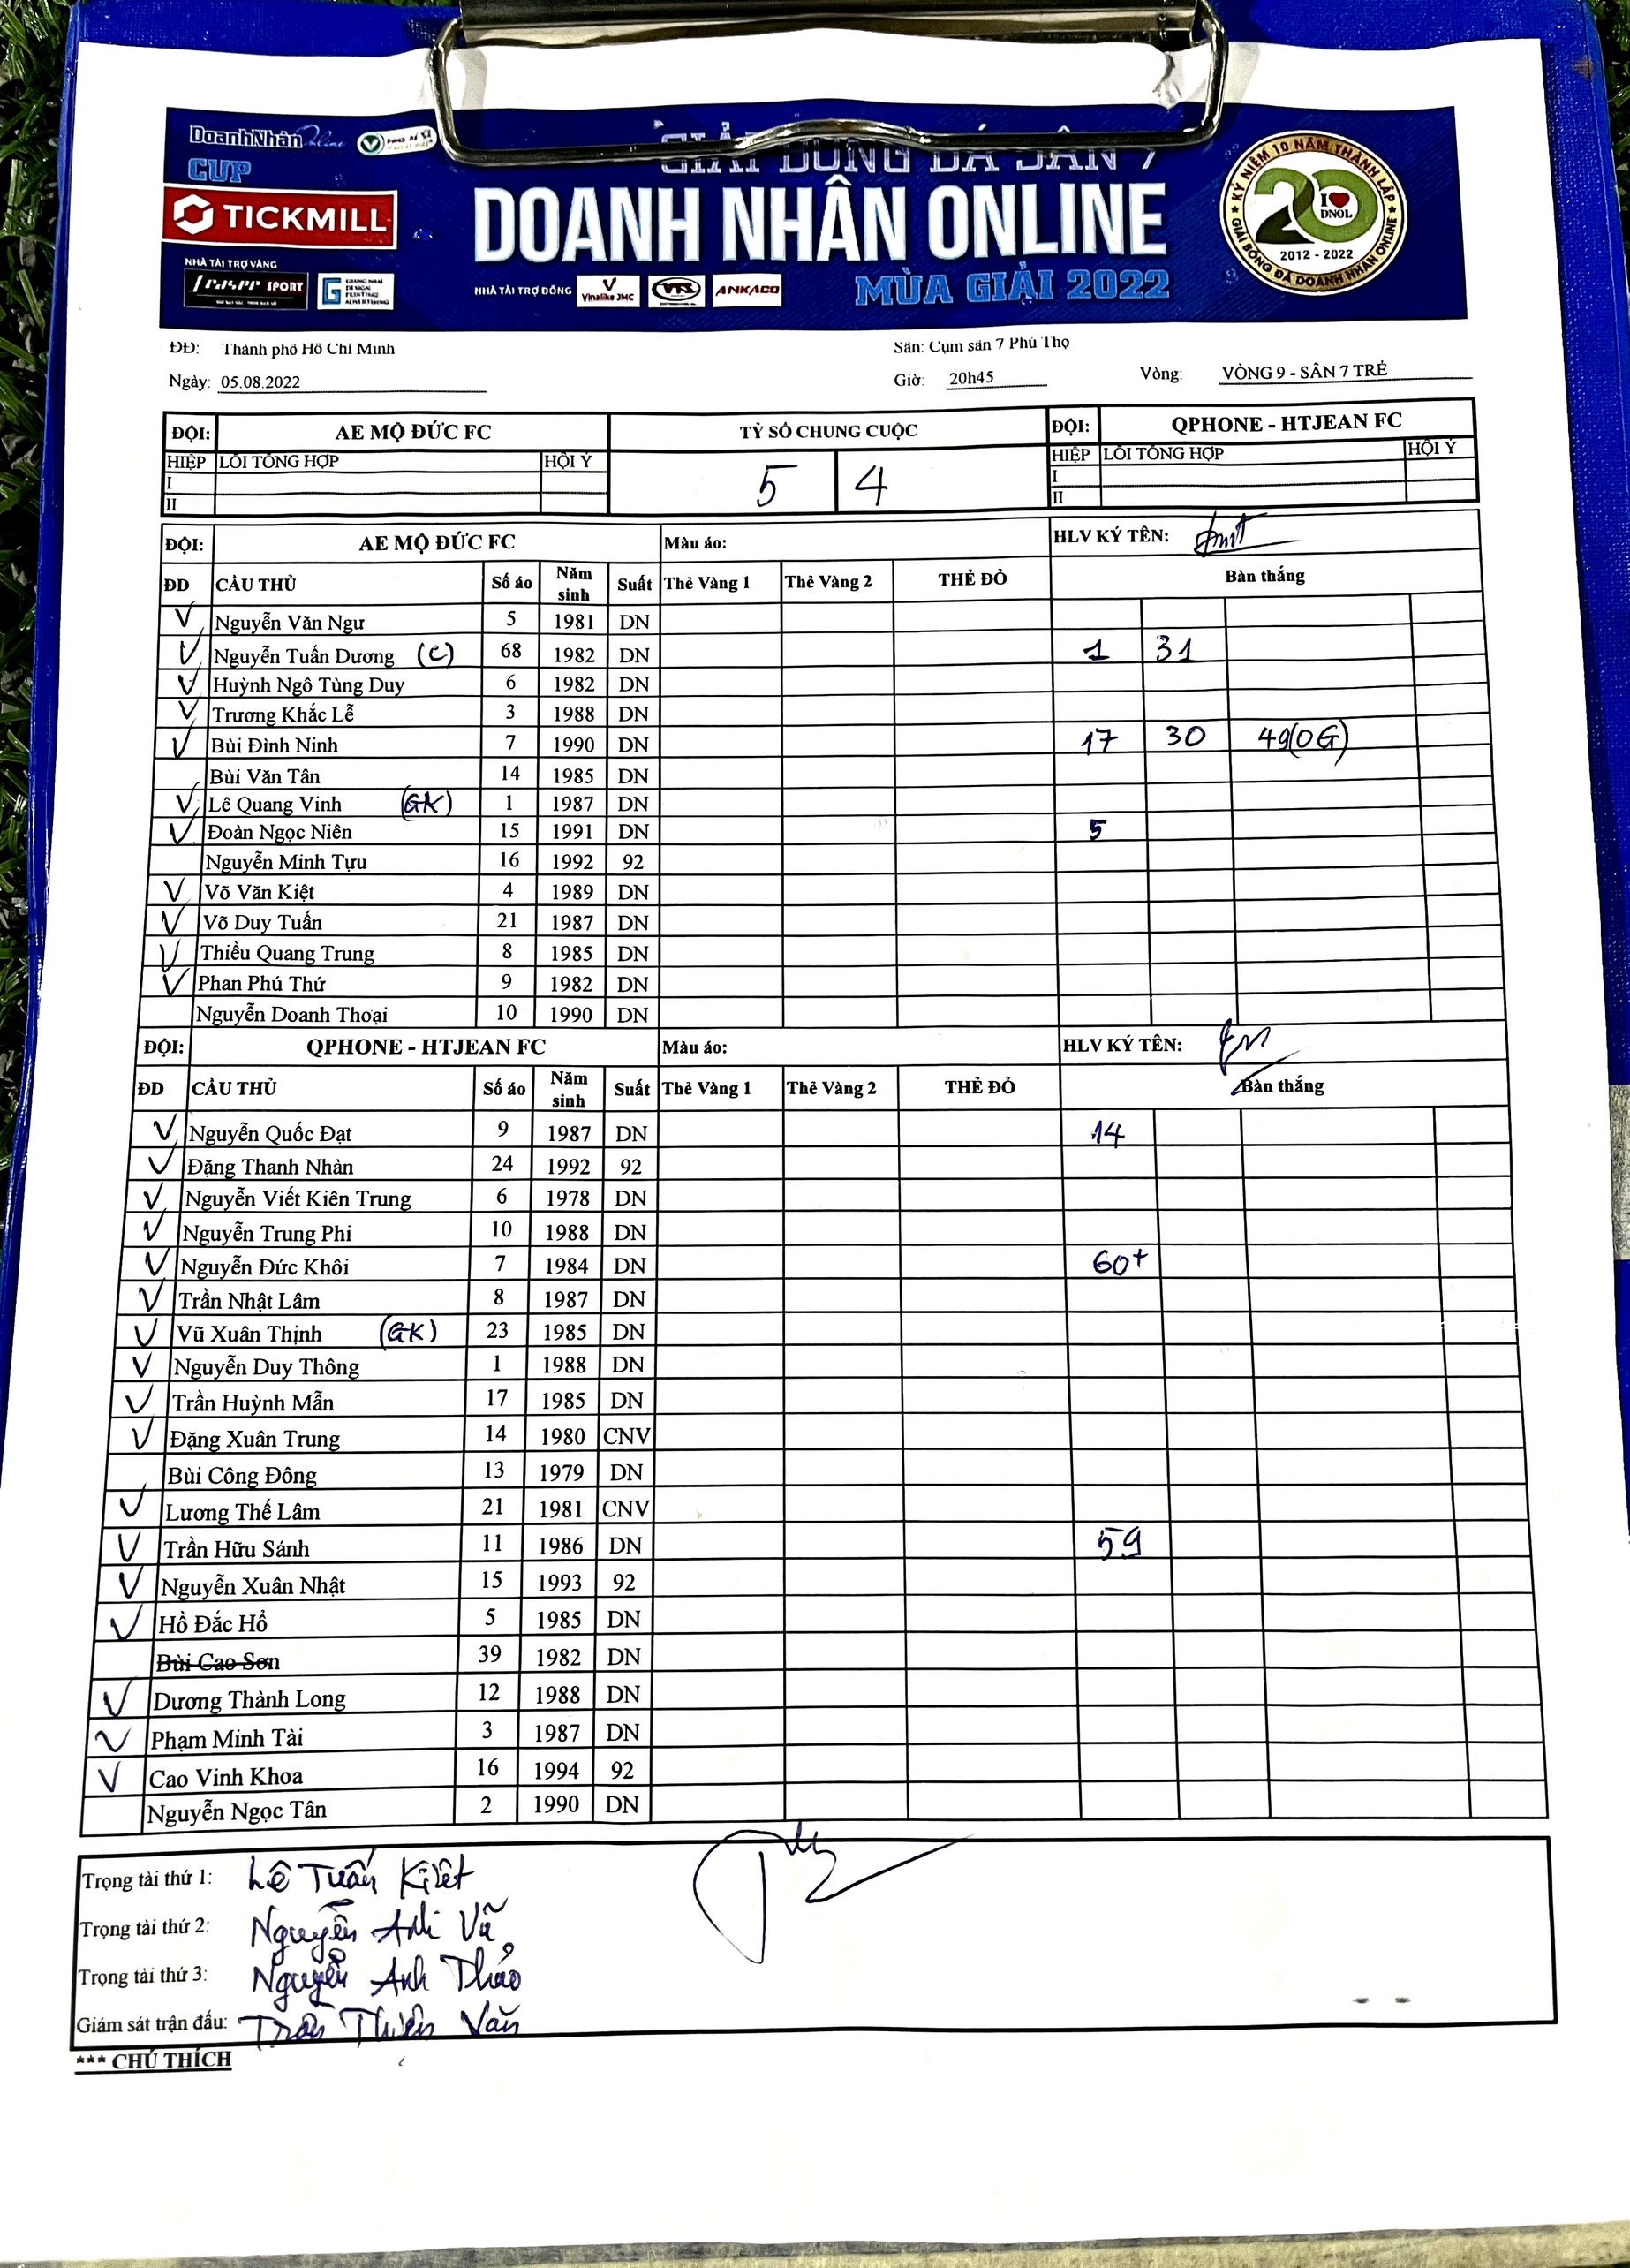 DoanhNhân Online
CUP
GIẢI BÓNG ĐÁ SÂN 7
TICKMILL
DOANH NHÂN ONLINE
MÙA GIẢI 2022
NHÀ TÀI TRỢ VÀNG
SPORT
NHÀ TÀI TRỢ ĐỒNG
Vinalike JMC
ANKACO
KỶ NIỆM 10 NĂM THÀNH LẬP
20
I ❤ DNOL
2012 - 2022
GIẢI BÓNG ĐÁ DOANH NHÂN ONLINE
ĐĐ: Thành phố Hồ Chí Minh Sân: Cụm sân 7 Phú Thọ
Ngày: 05.08.2022 Giờ: 20h45 Vòng: VÒNG 9 - SÂN 7 TRẺ
ĐỘI: AE MỘ ĐỨC FC TỶ SỐ CHUNG CUỘC ĐỘI: QPHONE - HTJEAN FC
HIỆP LỖI TỔNG HỢP HỘI Ý 5 4 HIỆP LỖI TỔNG HỢP HỘI Ý
I I
II II
ĐỘI: AE MỘ ĐỨC FC Màu áo: HLV KÝ TÊN:
ĐD CẦU THỦ Số áo Năm sinh Suất Thẻ Vàng 1 Thẻ Vàng 2 THẺ ĐỎ Bàn thắng
✓ Nguyễn Văn Ngư 5 1981 DN
✓ Nguyễn Tuấn Dương (C) 68 1982 DN 1 31
✓ Huỳnh Ngô Tùng Duy 6 1982 DN
✓ Trương Khắc Lễ 3 1988 DN
✓ Bùi Đình Ninh 7 1990 DN 17 30 49(OG)
Bùi Văn Tân 14 1985 DN
✓ Lê Quang Vinh (GK) 1 1987 DN
✓ Đoàn Ngọc Niên 15 1991 DN 5
Nguyễn Minh Tựu 16 1992 92
✓ Võ Văn Kiệt 4 1989 DN
✓ Võ Duy Tuấn 21 1987 DN
✓ Thiều Quang Trung 8 1985 DN
✓ Phan Phú Thứ 9 1982 DN
Nguyễn Doanh Thoại 10 1990 DN
ĐỘI: QPHONE - HTJEAN FC Màu áo: HLV KÝ TÊN:
ĐD CẦU THỦ Số áo Năm sinh Suất Thẻ Vàng 1 Thẻ Vàng 2 THẺ ĐỎ Bàn thắng
✓ Nguyễn Quốc Đạt 9 1987 DN 14
✓ Đặng Thanh Nhàn 24 1992 92
✓ Nguyễn Viết Kiên Trung 6 1978 DN
✓ Nguyễn Trung Phi 10 1988 DN
✓ Nguyễn Đức Khôi 7 1984 DN 60+
✓ Trần Nhật Lâm 8 1987 DN
✓ Vũ Xuân Thịnh (GK) 23 1985 DN
✓ Nguyễn Duy Thông 1 1988 DN
✓ Trần Huỳnh Mẫn 17 1985 DN
✓ Đặng Xuân Trung 14 1980 CNV
Bùi Công Đông 13 1979 DN
✓ Lương Thế Lâm 21 1981 CNV
✓ Trần Hữu Sánh 11 1986 DN 59
✓ Nguyễn Xuân Nhật 15 1993 92
✓ Hồ Đắc Hổ 5 1985 DN
Bùi Cao Sơn 39 1982 DN
✓ Dương Thành Long 12 1988 DN
✓ Phạm Minh Tài 3 1987 DN
✓ Cao Vinh Khoa 16 1994 92
Nguyễn Ngọc Tân 2 1990 DN
Trọng tài thứ 1: Lê Tuấn Kiệt
Trọng tài thứ 2: Nguyễn Anh Vũ
Trọng tài thứ 3: Nguyễn Anh Thảo
Giám sát trận đấu: Trần Thiện Văn
*** CHÚ THÍCH